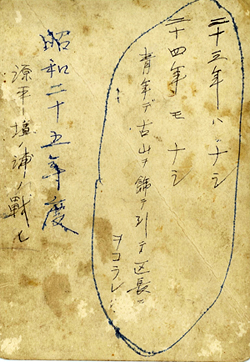 二十三年ハナシ
二十四年モナシ
青年デ古山ヲ飾テ引テ区長ニ
ヲコラレ
昭和二十五年度
源平壇ノ浦ノ戰ヒ